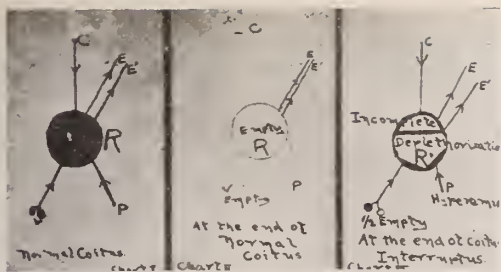 C
E
E'
R
P
Normal Coitus.
Chart I
C
E
E'
Empty
R
V
P
Empty
At the end of
Normal
Coitus
Chart II
C
E
E'
Incomplete
Deplethorizatio
R'
P
Hyperemia
1/2 Empty
At the end of coitus
Interruptus.